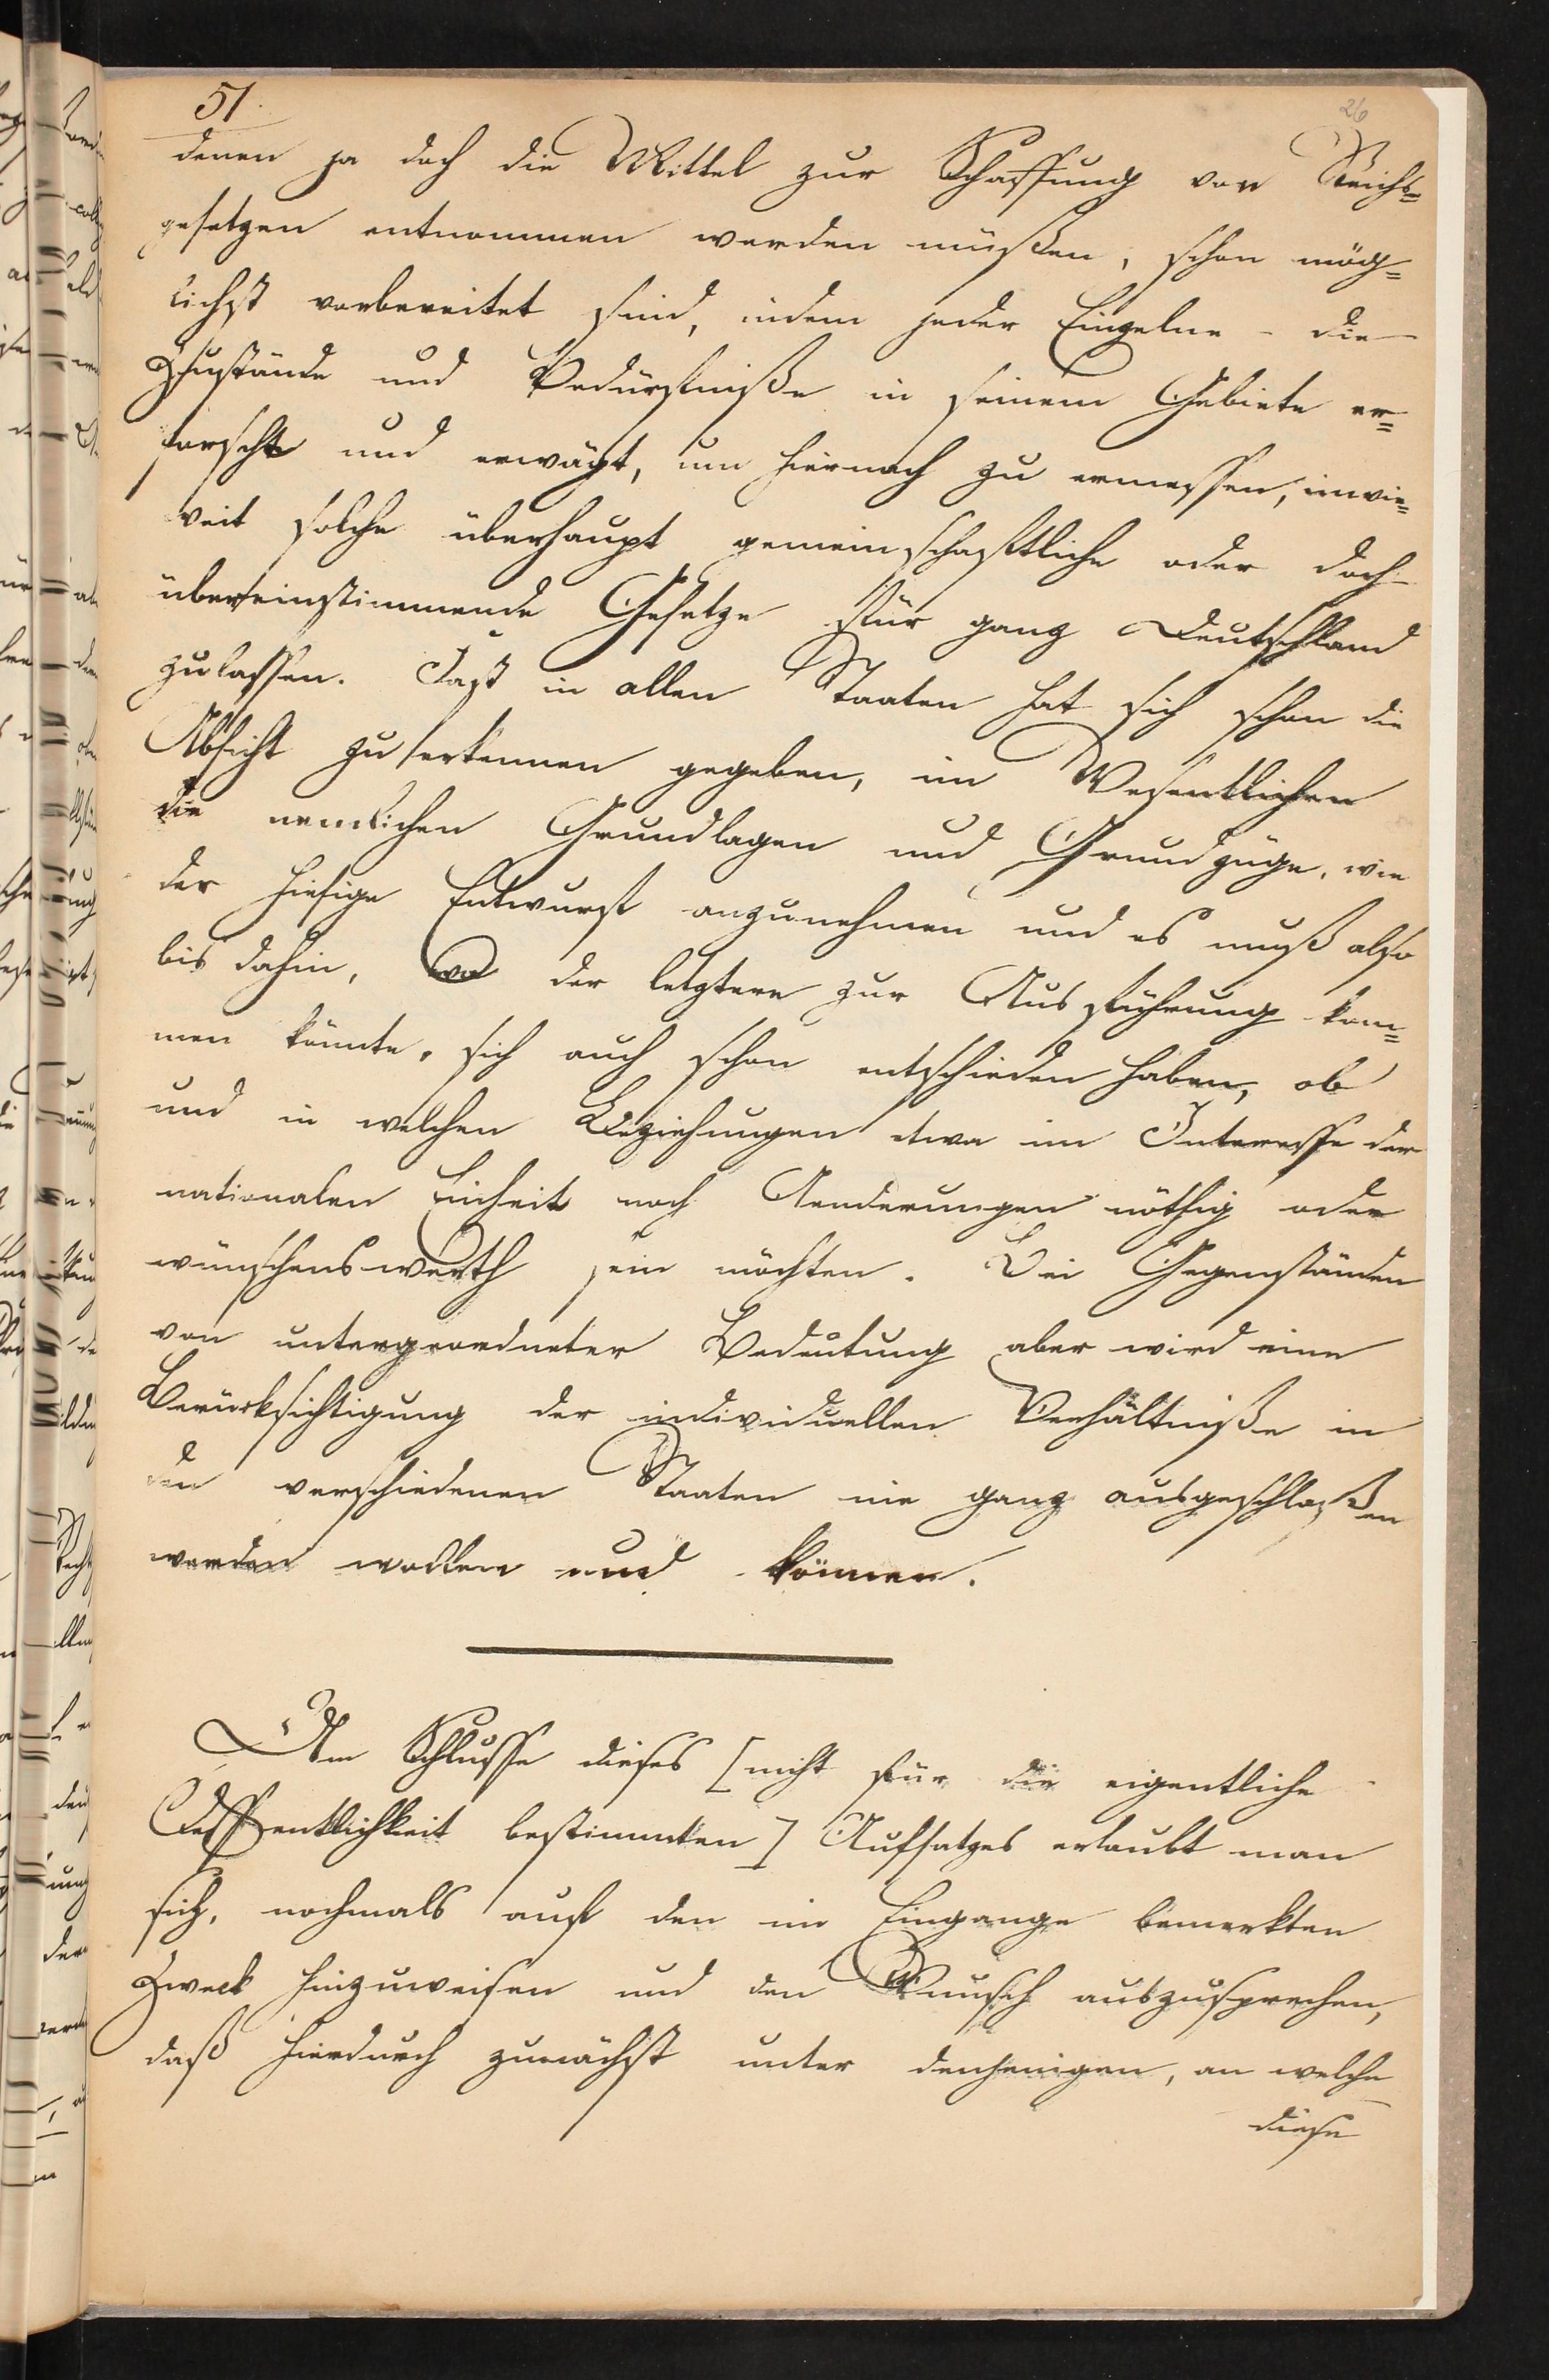 51.
26
denen ja doch die Mittel zur Schaffung von Reichs=
gesetzen entnommen werden müßen, schon mög=
lichst vorbereitet sind, indem jeder Einzelne - die
Zustände und Bedürfniße in seinem Gebiete er=
forscht und erwägt, um hiernach zu ermessen, inwie=
weit solche überhaupt gemeinschaftliche oder doch
übereinstimmende Gesetze für ganz Deutschland
zulassen. Fast in allen Staaten hat sich schon die
Absicht zu erkennen gegeben, im Wesentlichen
die nemlichen Grundlagen und Grundzüge, wie
der hiesige Entwurf anzunehmen und es muß also
bis dahin, wo der letztere zur Ausführung kom=
men könnte, sich auch schon entschieden haben, ob
und in welchen Beziehungen etwa im Interesse der
nationalen Einheit noch Aenderungen nöthig oder
wünschenswerth sein möchten. Bei Gegenständen
von untergeordneter Bedeutung aber wird eine
Berücksichtigung der individuellen Verhältniße in
den verschiedenen Staaten nie ganz ausgeschloßen
werden wollen und können.
Am Schlusse dieses [nicht für die eigentliche
Oeffentlichkeit bestimmten] Aufsatzes erlaubt man
sich, nochmals auf den im Eingange bemerkten
Zweck hinzuweisen und den Wunsch auszusprechen,
daß hierdurch zunächst unter denjenigen, an welche
diese